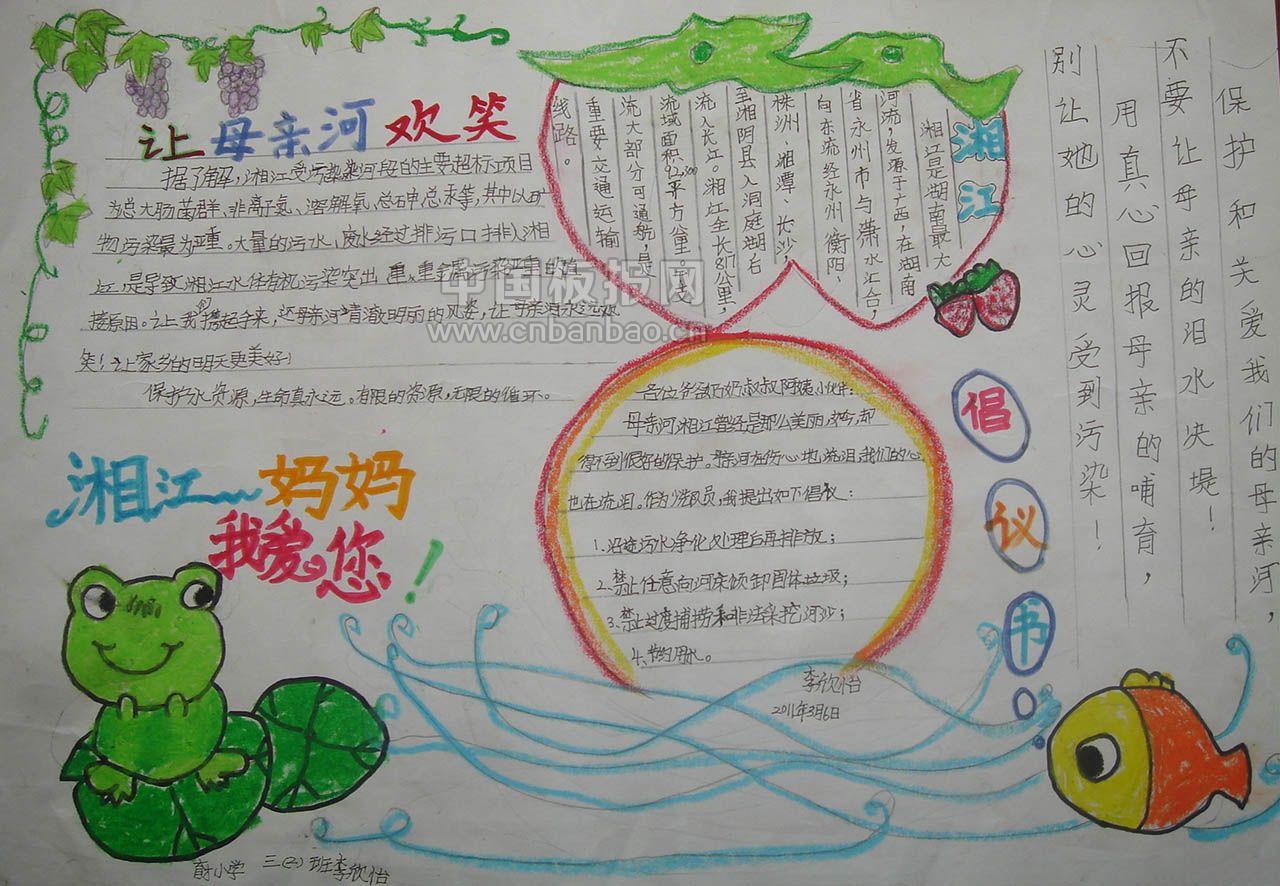 让母亲河欢笑
据了解，湘江受污染河段的主要超标项目
为总大肠菌群、非离子氨、溶解氧、总砷总汞等，其中以矿
物污染最为严重。大量的污水、废水经过排污口排入湘
江，是导致湘江水体有机污染突出、重金属污染严重的直
接原因。让我们携起手来，还母亲河清澈明丽的风姿，让母亲河永远欢
笑！让家乡的明天更美好！
保护水资源，生命真永远。有限的资源，无限的循环。
湘江
湘江是湖南最大
河流，发源于广西，在湖南
省永州市与潇水汇合，
向东流经永州、衡阳、
株洲、湘潭、长沙，
至湘阴县入洞庭湖右
流入长江。湘江全长817公里，
流域面积92300平方公里。干支
流大部分可通航，是
重要交通运输
线路。
保护和关爱我们的母亲河，
不要让母亲的泪水决堤！
用真心回报母亲的哺育，
别让她的心灵受到污染！
中国板报网
www.cnbanbao.cn
倡议书
各位爷爷奶奶叔叔阿姨小伙伴：
母亲河湘江曾经是那么美丽，如今，却
得不到很好的保护。母亲河在伤心地流泪，我们的心
也在流泪。作为少先队员，我提出如下倡议：
1.沿途污水净化处理后再排放；
2.禁止任意向河床倾卸固体垃圾；
3.禁止过度捕捞和非法采挖河沙；
4.节约用水。
李欣怡
2011年3月6日
湘江妈妈
我爱您！
小学 三（2）班李欣怡